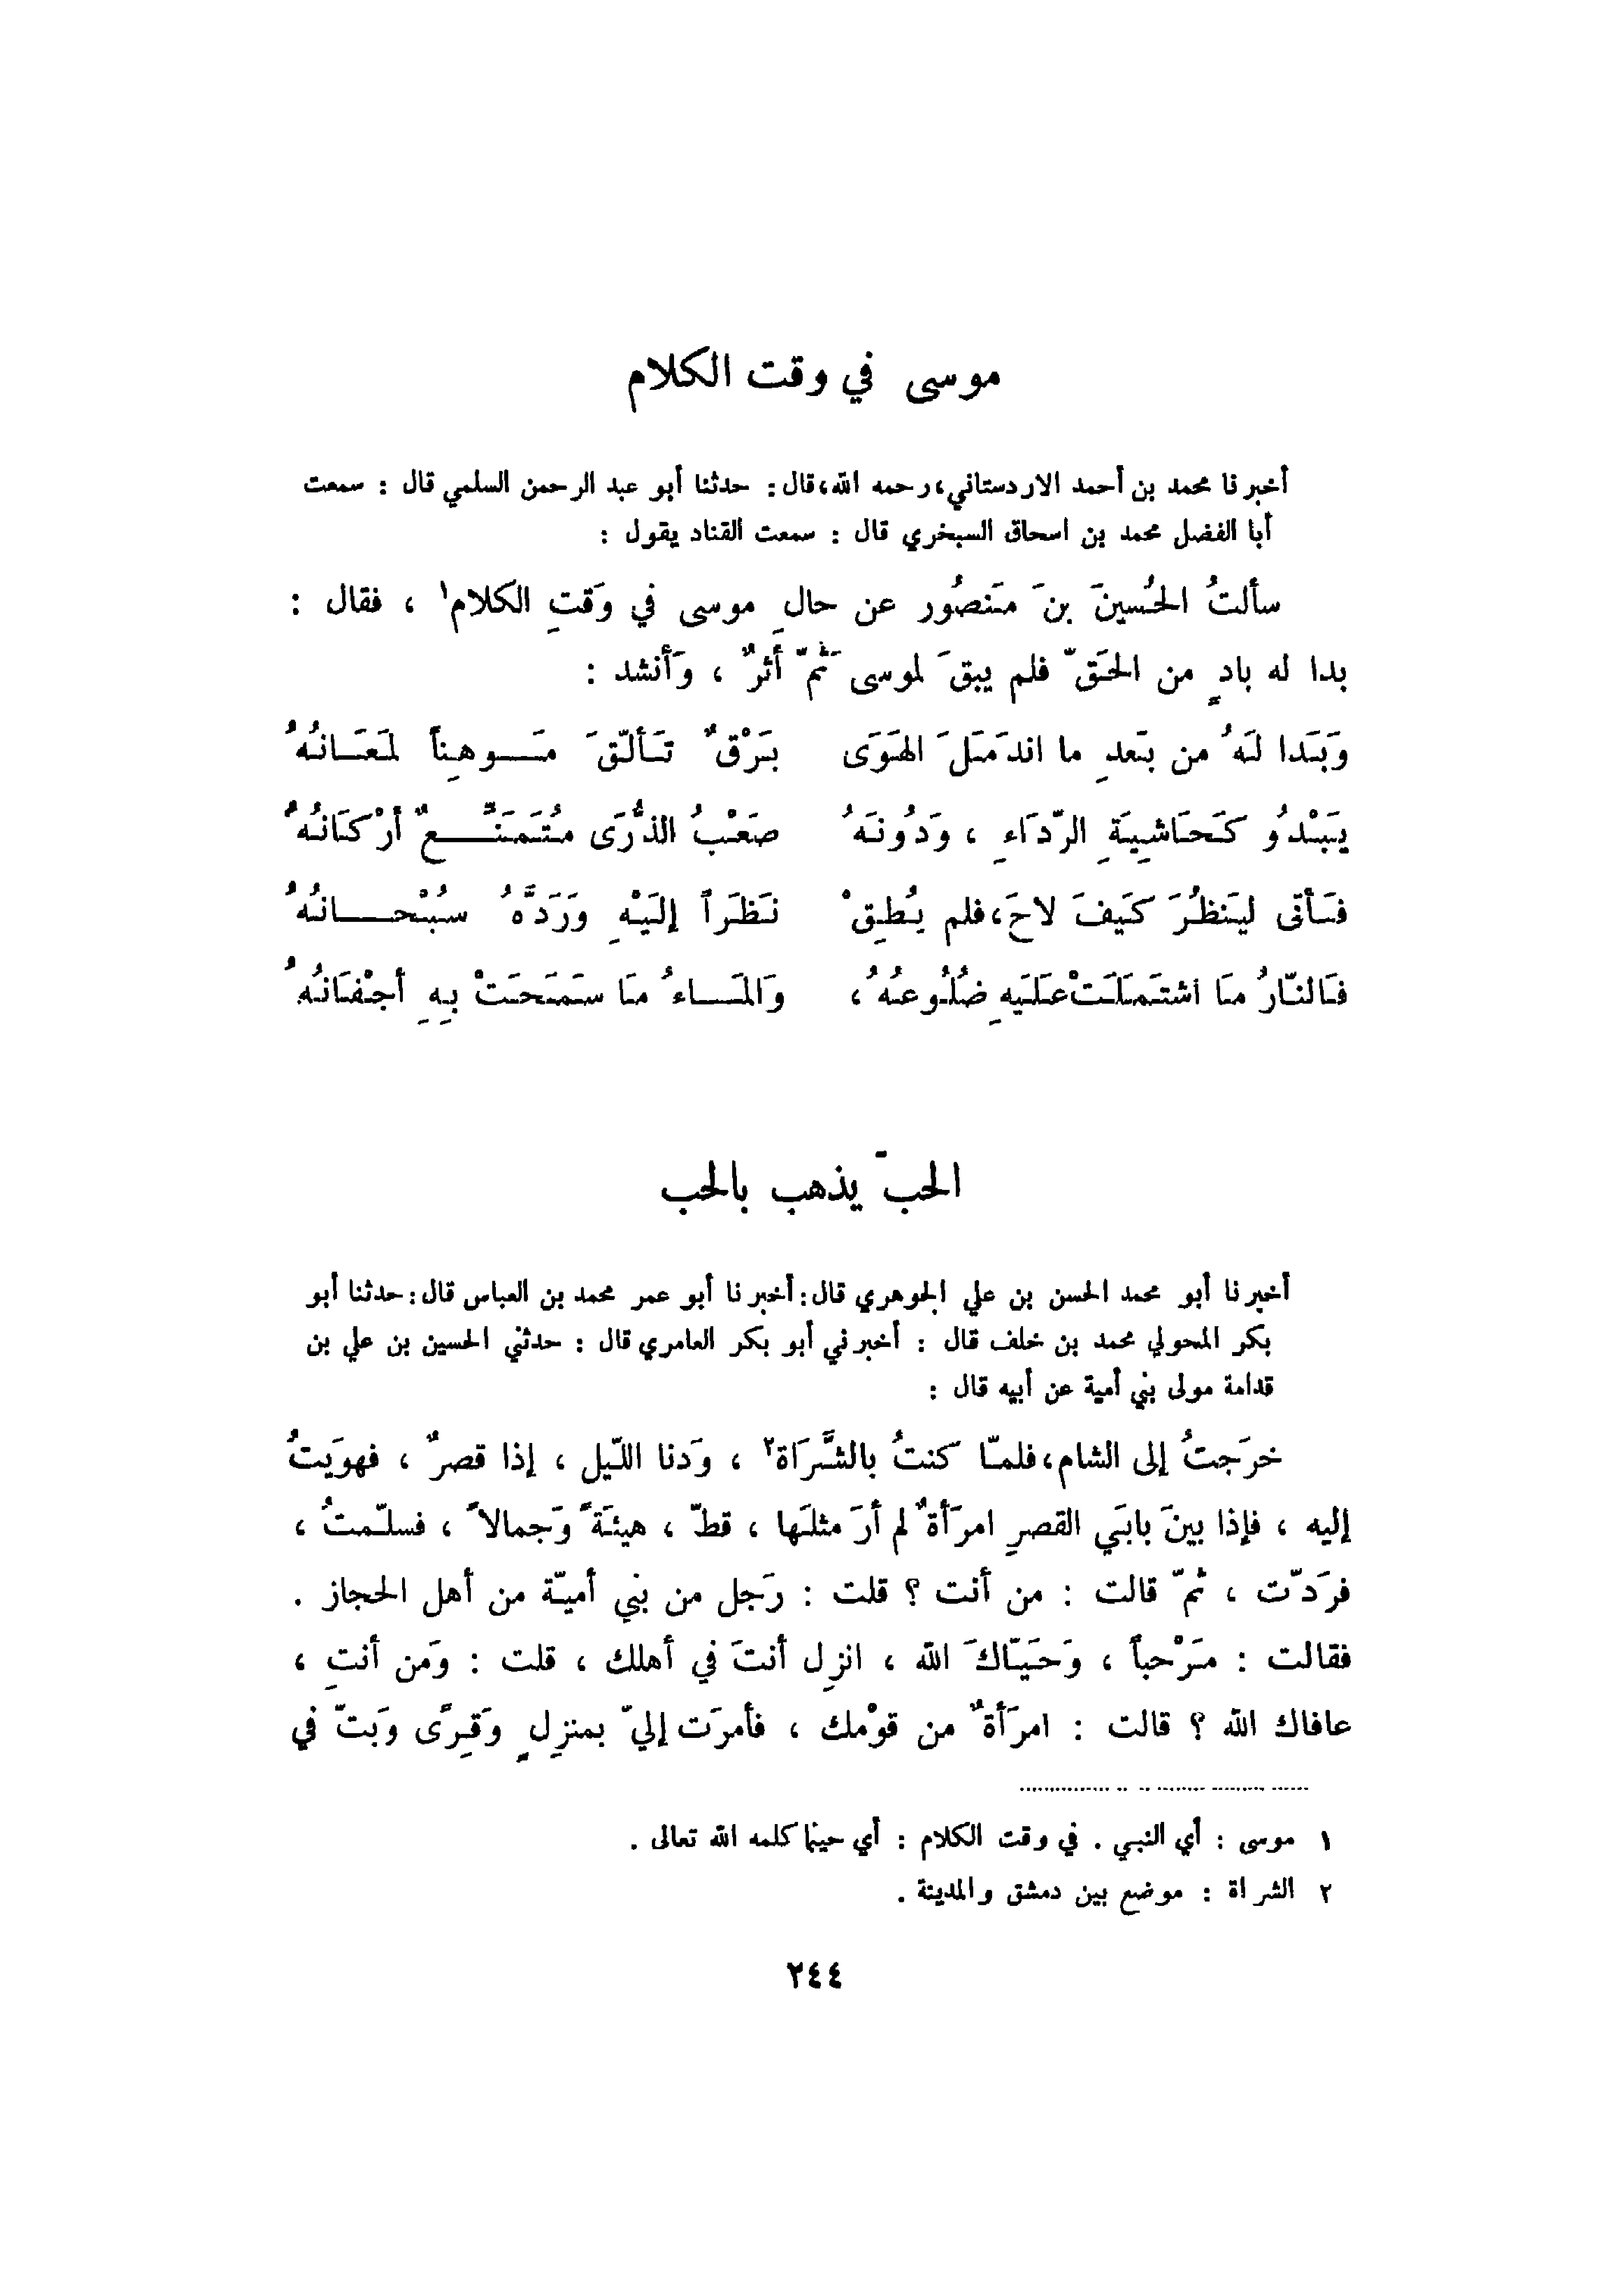 موسى في وقت الكلام
أخبرنا محمد بن أحمد الاردستاني، رحمه الله، قال: حدثنا أبو عبد الرحمن السلمي قال : سمعت
أبا الفضل محمد بن اسحاق السبخري قال : سمعت القناد يقول :
سألتُ الحُسينَ بنَ مَنصُور عن حالِ موسى في وَقتِ الكلام١ ، فقال :
بدا له بادٍ من الحَقّ فلم يبقَ لموسى ثَمّ أَثرٌ ، وَأنشد :
وَبَدا لَهُ من بَعدِ ما اندَمَلَ الهَوَى بَرْقٌ تَألّقَ مَوهِناً لمَعَانُهُ
يَبْدُو كَحَاشِيَةِ الرّدَاءِ ، وَدُونَهُ صَعْبُ الذُّرَى مُتَمَنِّعٌ أرْكَانُهُ
فَأتى ليَنظُرَ كَيفَ لاحَ، فلم يُطِقْ نَظَراً إلَيْهِ وَرَدَّهُ سُبْحانُهُ
فَالنّارُ مَا اشتَمَلَتْ عَلَيهِ ضُلُوعُهُ ، وَالمَاءُ مَا سَمَحَتْ بِهِ أجْفَانُهُ
الحبّ يذهب بالحب
أخبرنا أبو محمد الحسن بن علي الجوهري قال: أخبرنا أبو عمر محمد بن العباس قال: حدثنا أبو
بكر المحولي محمد بن خلف قال : أخبرني أبو بكر العامري قال : حدثني الحسين بن علي بن
قدامة مولى بني أمية عن أبيه قال :
خرَجتُ إلى الشام، فلمّا كنتُ بالشَّرَاة٢ ، وَدنا اللّيل ، إذا قصرٌ ، فهوَيتُ
إليه ، فإذا بينَ بابَي القصرِ امرَأةٌ لم أرَ مثلَها ، قطّ ، هيئَةً وَجمالاً ، فسلّمتُ ،
فرَدّت ، ثمّ قالت : من أنت ؟ قلت : رَجل من بني أميّة من أهل الحجاز .
فقالت : مَرْحباً ، وَحَيّاكَ الله ، انزِل أنتَ في أهلك ، قلت : وَمن أنتِ ،
عافاك الله ؟ قالت : امرَأةٌ من قوْمك ، فأمرَت إليّ بمنزِلٍ وَقِرًى وَبتّ في
١ موسى : أي النبي . في وقت الكلام : أي حينما كلمه الله تعالى .
٢ الشراة : موضع بين دمشق والمدينة .
٢٤٤